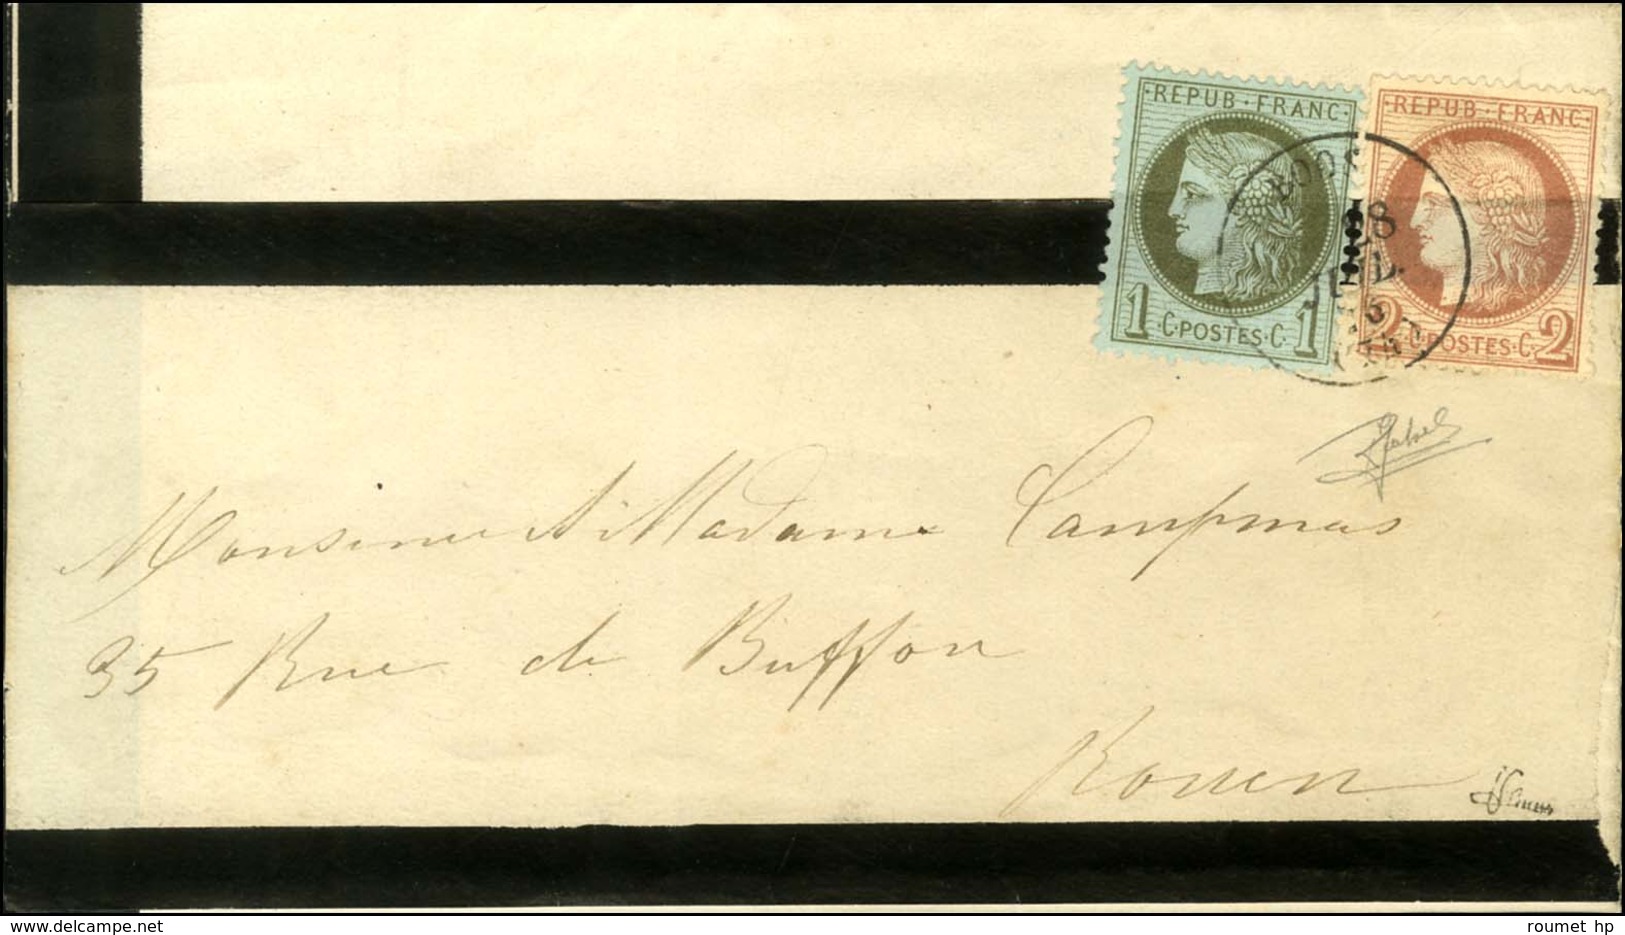 REPUB·FRANC·
1 ·C·POSTES·C· 1
REPUB·FRANC·
2 ·C·POSTES·C· 2
28
JUIL.
Monsieur & Madame Campmas
35 Rue de Buffon
Rouen
www.delcampe.net
roumet hp